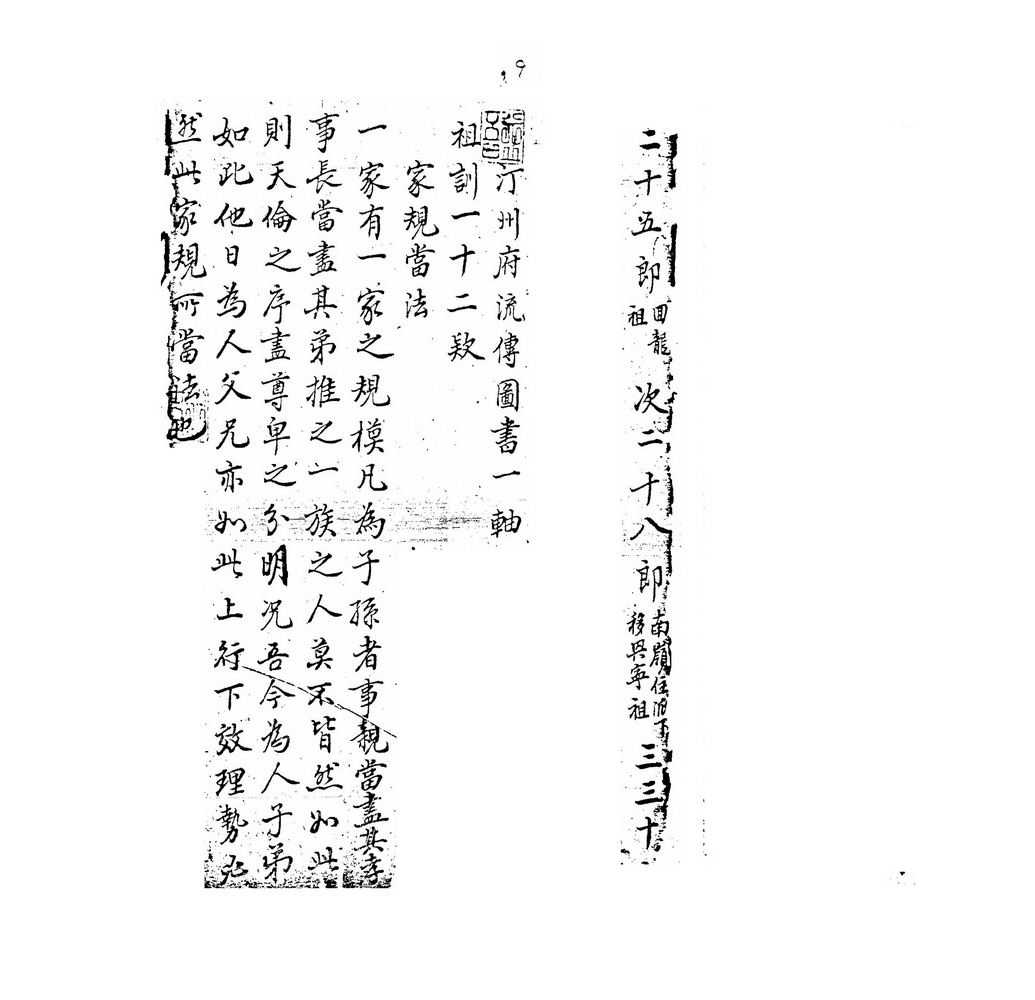 9
二十五郎回龍祖次二十八郎南嶺住 下移興寧祖三三十
汀州府流傳圖書一軸
祖訓一十二款
家規當法
一家有一家之規模凡為子孫者事親當盡其孝
事長當盡其弟推之一族之人莫不皆然如此
則天倫之序盡尊卑之分明况吾今為人子弟
如此他日為人父兄亦如此上行下效理勢必
然此家規所當法也